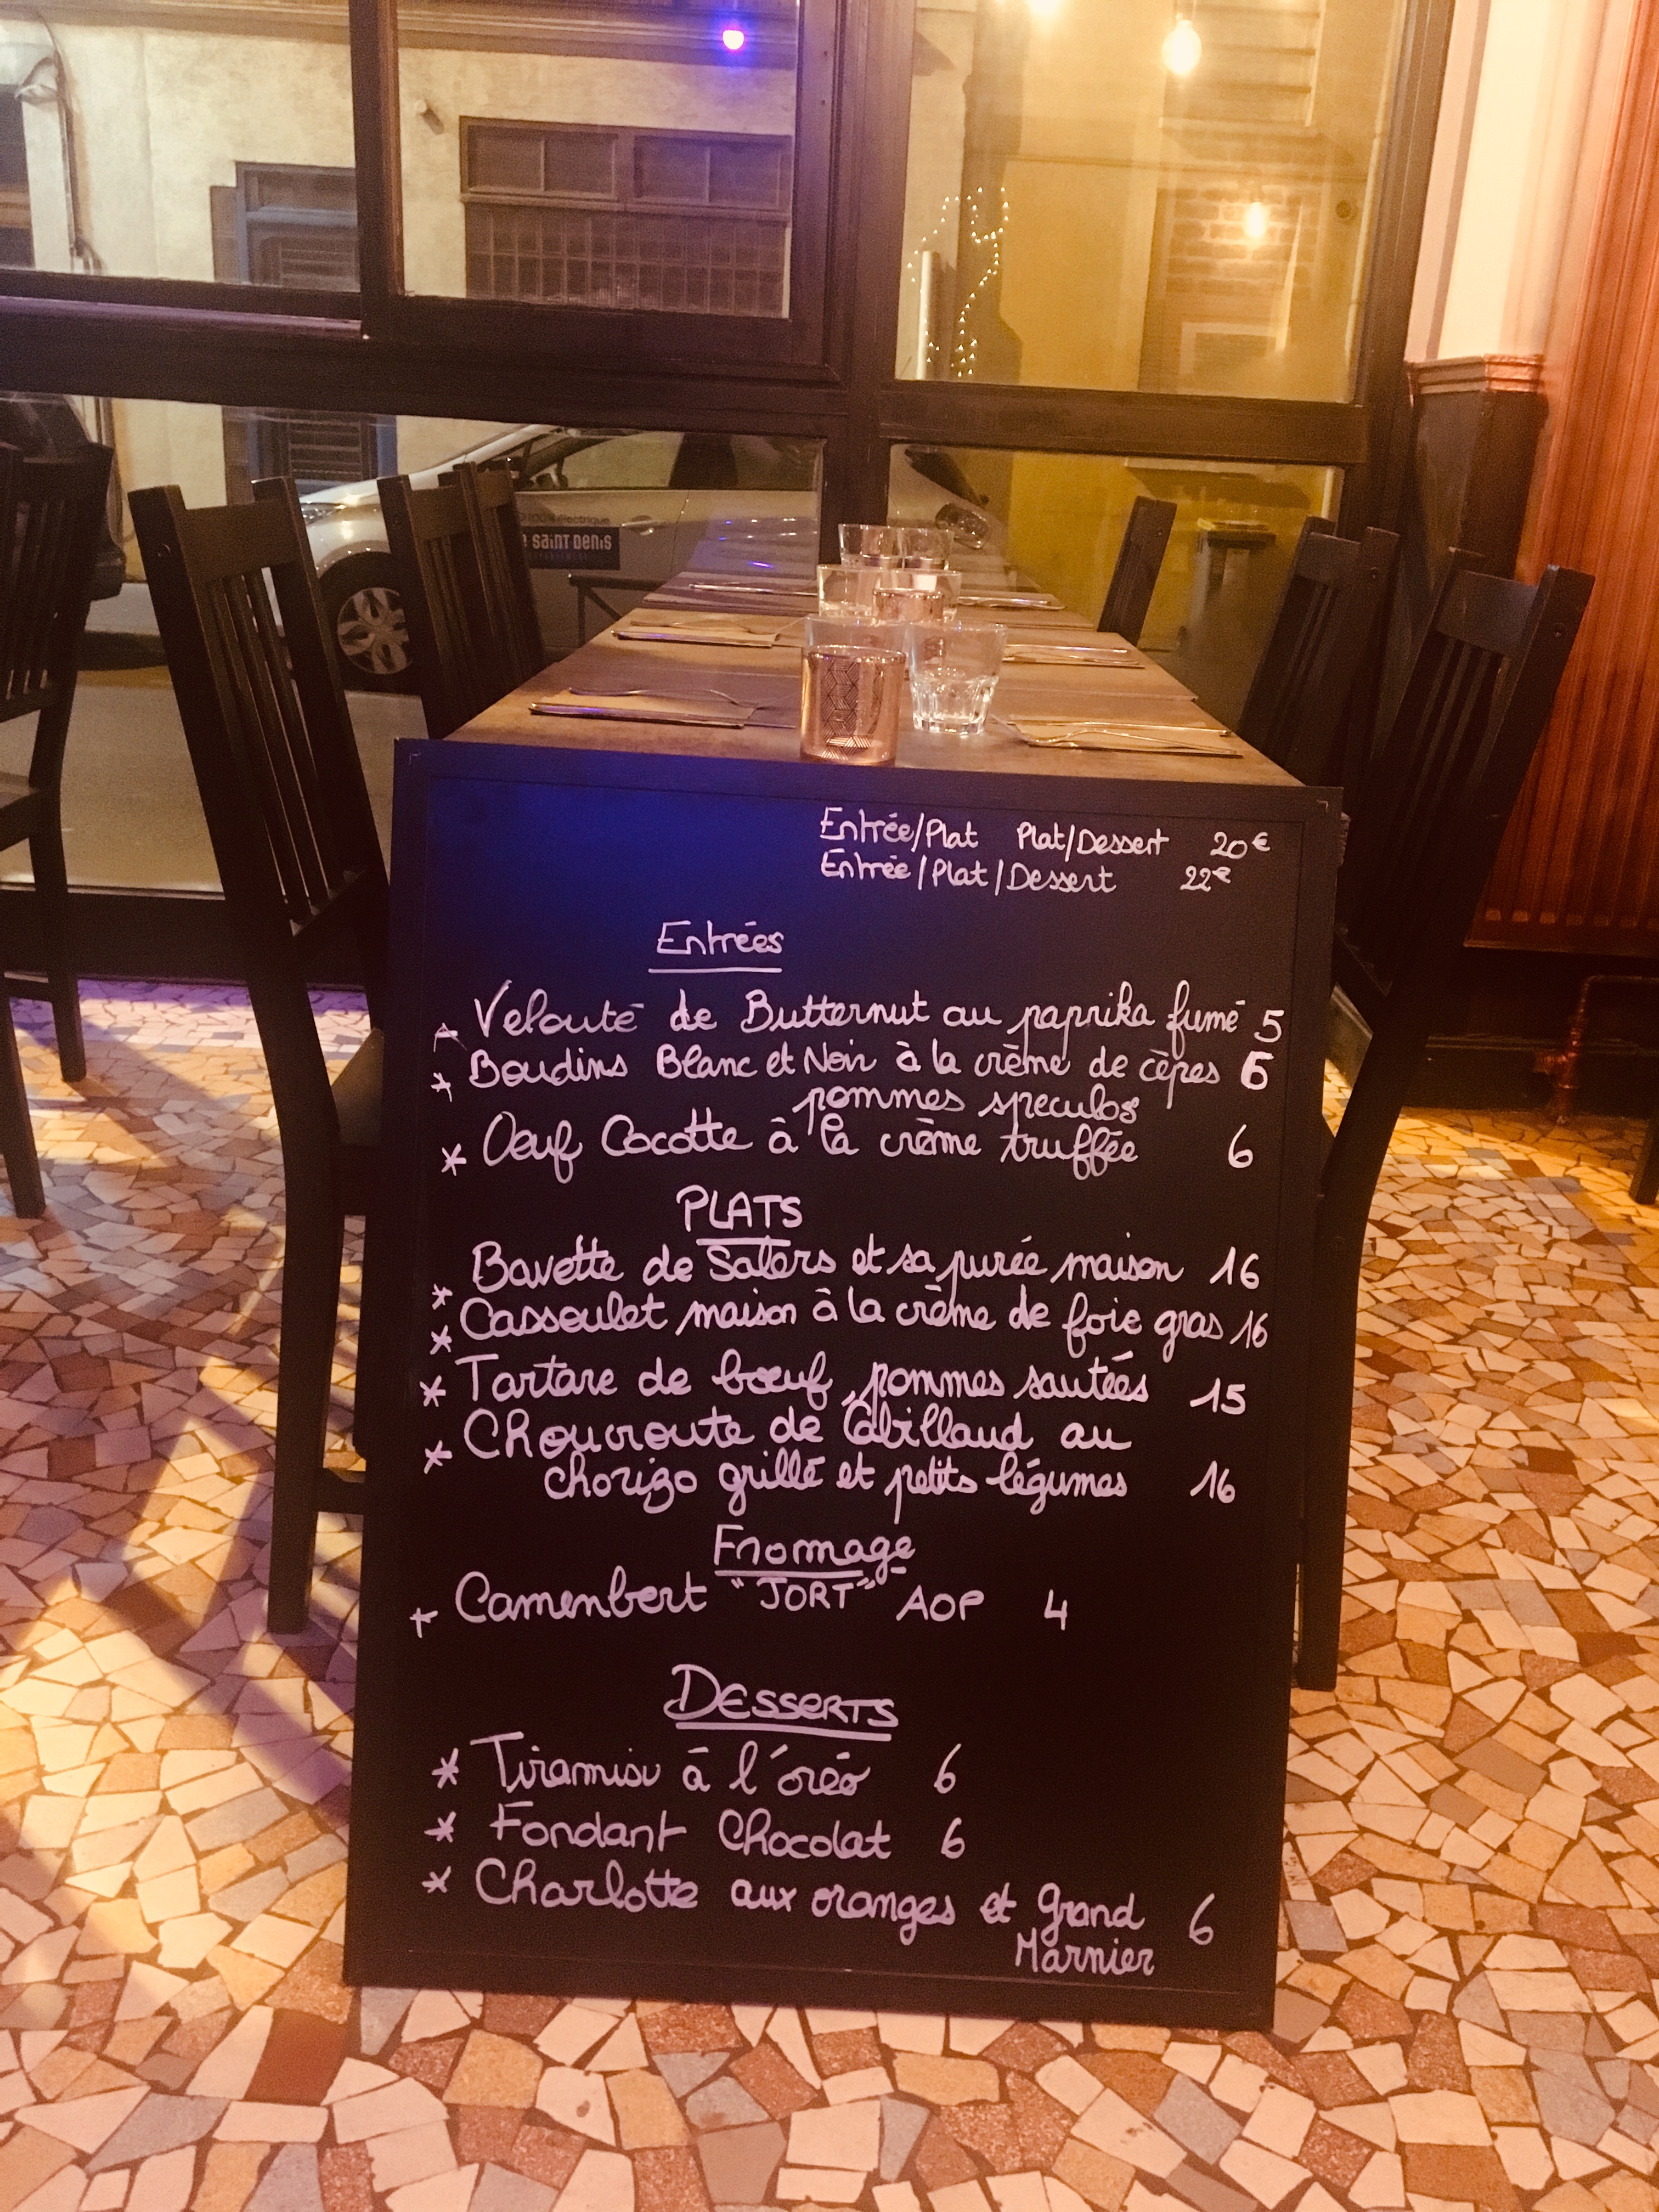 100% électrique
SAINT DENIS
Entrée/Plat Plat/Dessert 20€
Entrée/Plat/Dessert 22€
Entrées
* Velouté de Butternut au paprika fumé 5
* Boudins Blanc et Noir à la crème de cèpes 6
pommes speculos
* Oeuf Cocotte à la crème truffée 6
PLATS
* Bavette de Salers et sa purée maison 16
* Cassoulet maison à la crème de foie gras 16
* Tartare de bœuf, pommes sautées 15
* Choucroute de Cabillaud au
chorizo grillé et petits légumes 16
Fromage
* Camenbert "JORT" AOP 4
DESSERTS
* Tiramisu à l'oréo 6
* Fondant Chocolat 6
* Charlotte aux oranges et Grand 6
Marnier